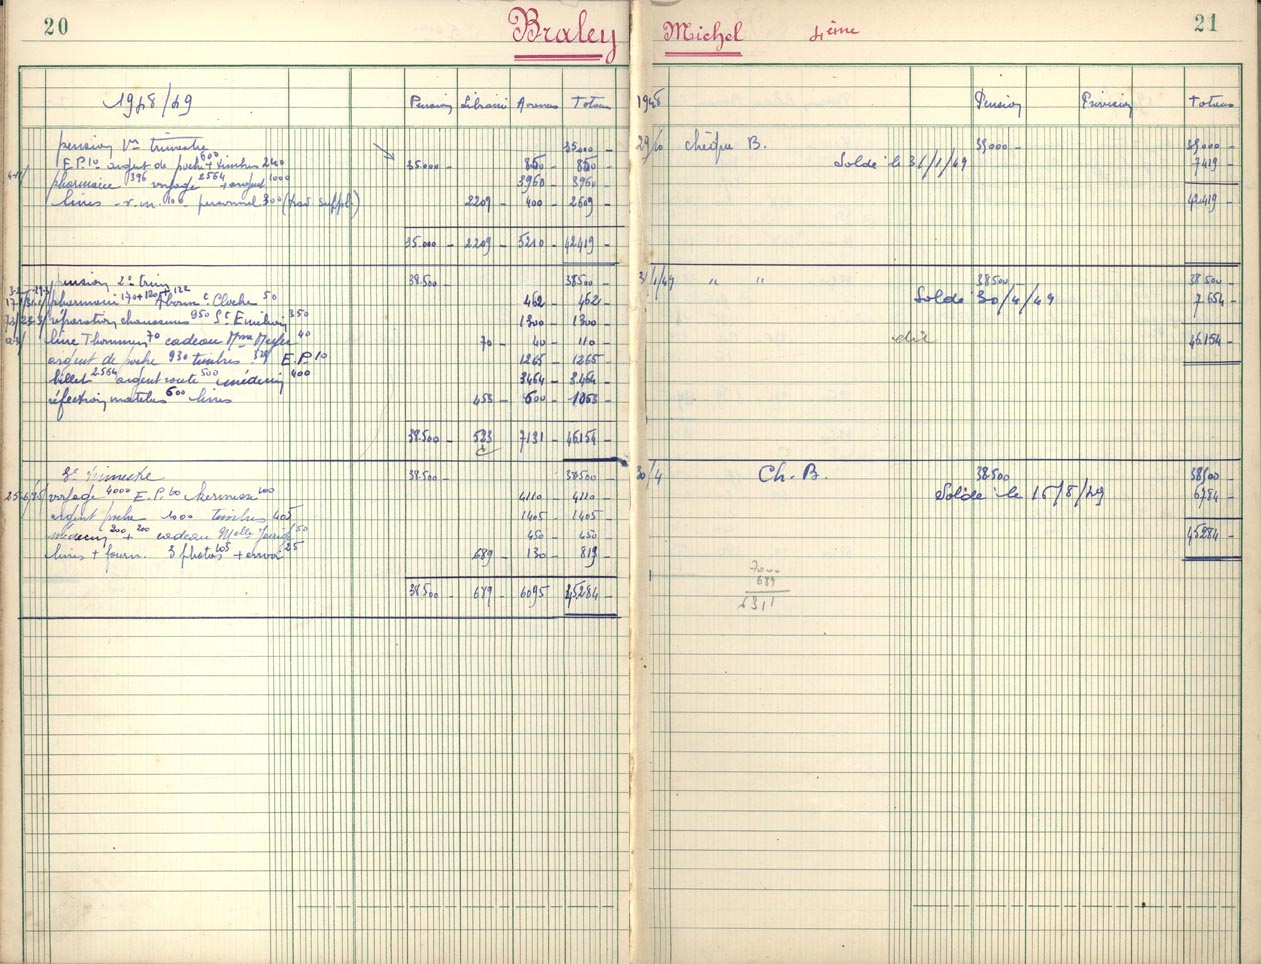 20
Braley
1948/49
Pension Librairie Avances Totaux
pension 1er trimestre 35.000
E.P. 10 argent de poche 600 + timbres 240 35.000 - 850 - 850 -
pharmacie 396 voyage 2564 + argent 1000 3960 - 3960 -
livres - r.m. 100 personnel 300 (trav suppl.) 2209 - 400 - 2609 -
35.000 - 2209 - 5210 - 42419 -
pension 2e trim 38.500 - 38500 -
pharmacie 170+120+122 Abonn. Cloche 50 462 - 462 -
réparation chaussures 950 St Emilion 350 1300 - 1300 -
livre 70 cadeau 40 70 - 40 - 110 -
argent de poche 930 timbres 325 E.P. 10 1265 - 1265 -
billet 2564 argent route 500 médecin 400 3464 - 3464 -
réfection matelas 600 livres 453 - 600 - 1053 -
38.500 - 523 7131 - 46154 -
3e trimestre 38.500 - 38500 -
voyage 4000 E.P. 10 kermesse 100 4110 - 4110 -
argent poche 1000 timbres 405 1405 - 1405 -
médecin 200 + 200 cadeau Melle 50 450 - 450 -
livres + fourn. 3 photos 105 + envoi 25 689 - 130 - 819 -
38.500 - 689 - 6095 45284 -
Michel 4ème
21
1948 Pension Provision Totaux
29/10 chèque B. 35000 - 35.000 -
Solde le 31/1/49 7419 -
42419 -
31/1/49 " " 38500 38500 -
Solde 30/4/49 7.654 -
46.154 -
30/4 Ch. B. 38.500 38500 -
Solde le 16/8/49 6784 -
45284 -
7000
689
6311